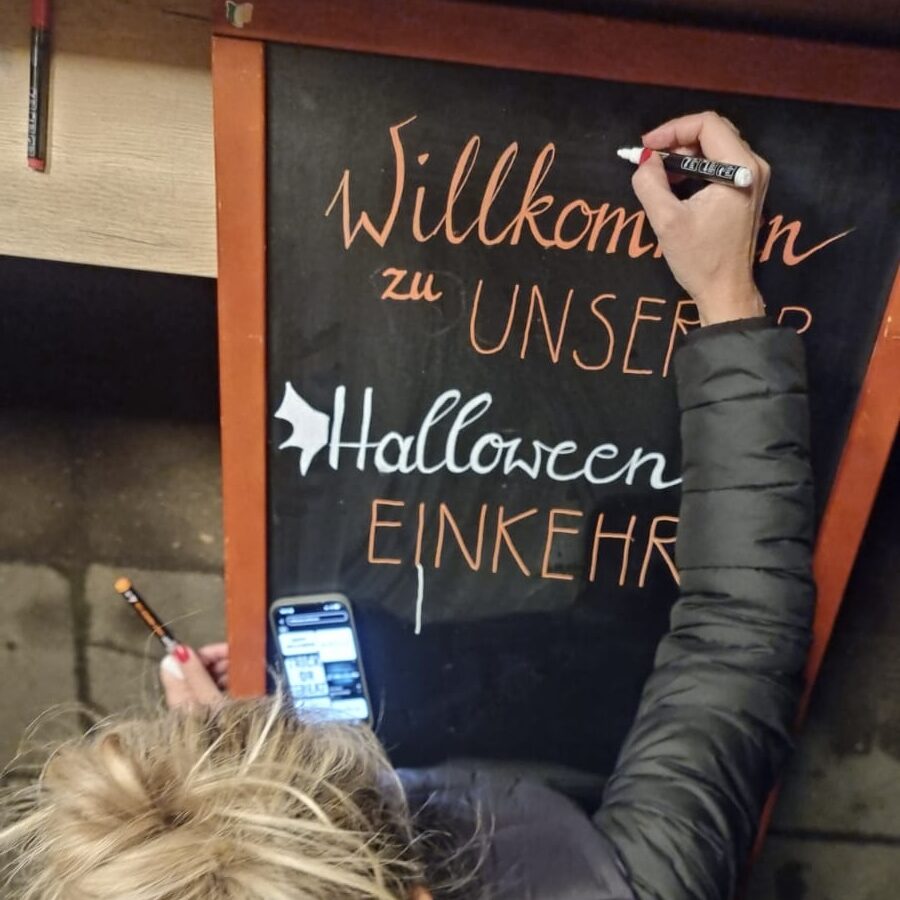 Willkommen
zu UNSERER
Halloween
EINKEHR